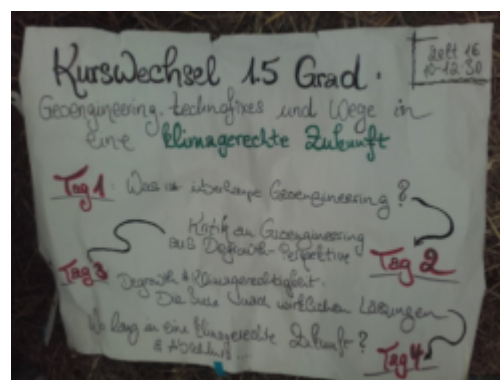 Kurswechsel 1.5 Grad.
Zelt 16
10-12.30
Geoengineering, technofixes und Wege in
eine klimagerechte Zukunft
Tag 1: Was ist überhaupt Geoengineering?
Kritik an Geoengineering
aus Degrowth-Perspektive
Tag 2
Tag 3
Degrowth & Klimagerechtigkeit.
Die Suche nach wirklichen Lösungen
Wo lang in eine klimagerechte Zukunft?
& Abschluss ...
Tag 4